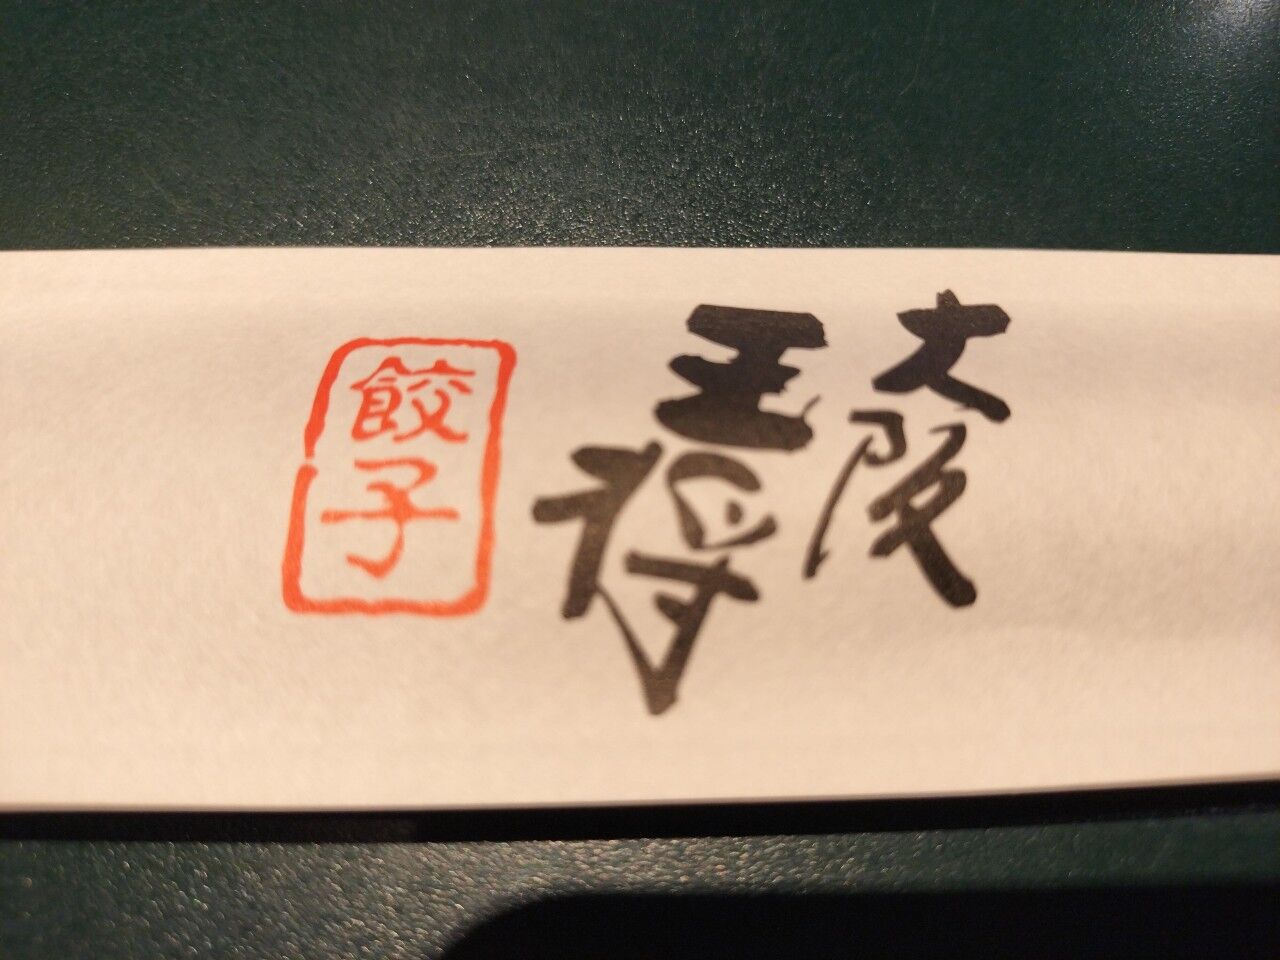 大阪
王将
餃子